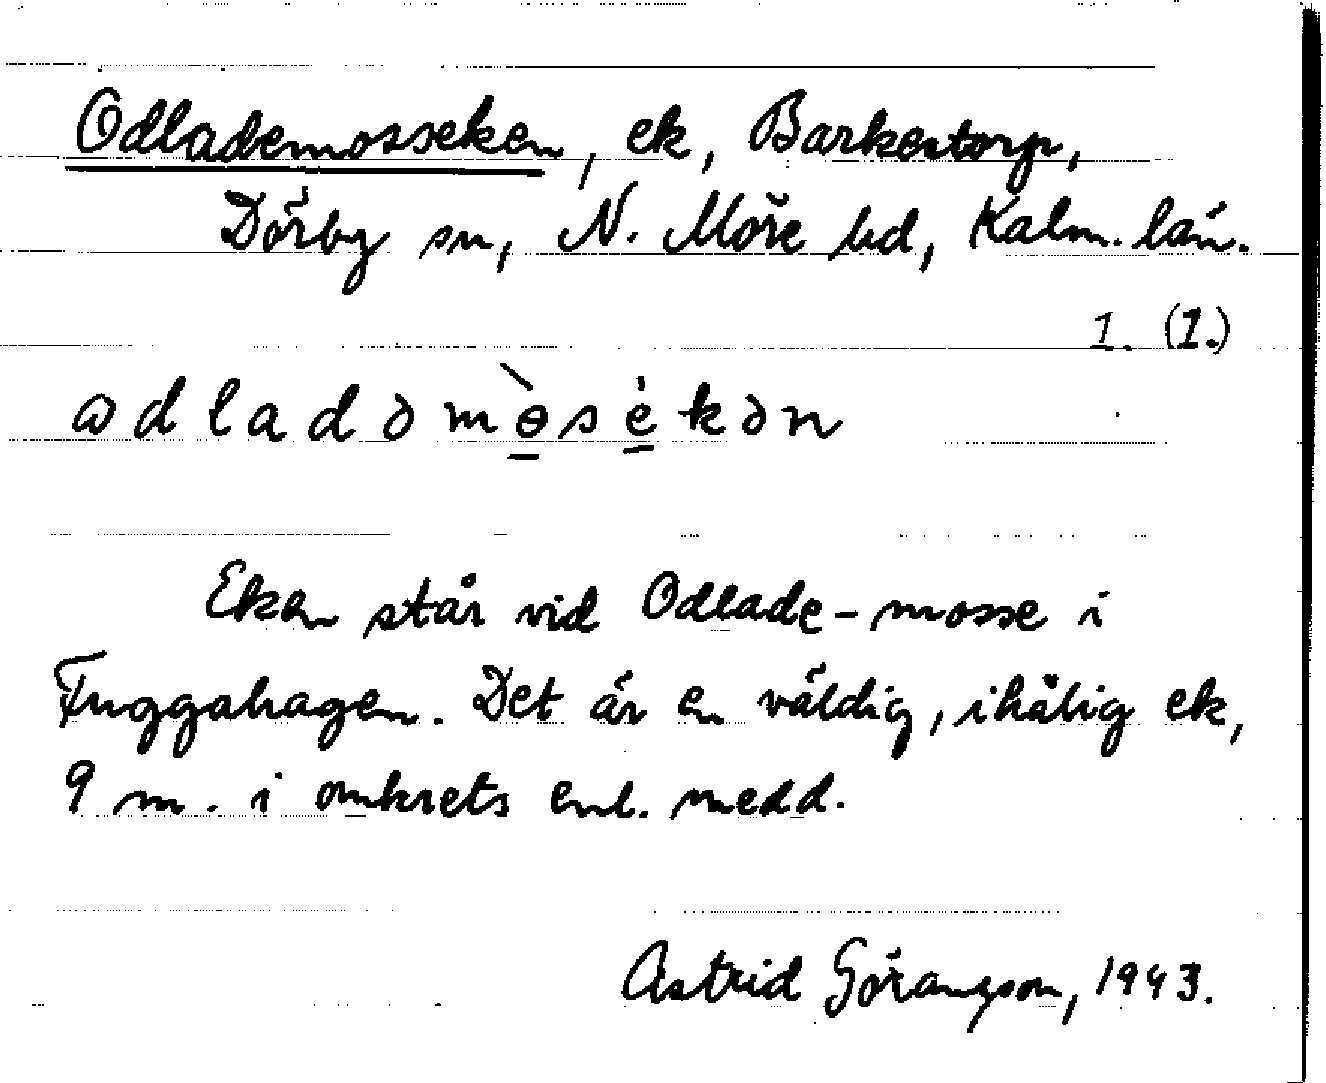 Odlademosseken, ek, Barkestorp,
Dörby sn, N. Möre hd, Kalm. län.
1. (1.)
ɷdladəmòsékən
Eken står vid Odlade-mosse i
Fuggahagen. Det är en väldig, ihålig ek,
9 m. i omkrets enl. medd.
Astrid Göransson, 1943.